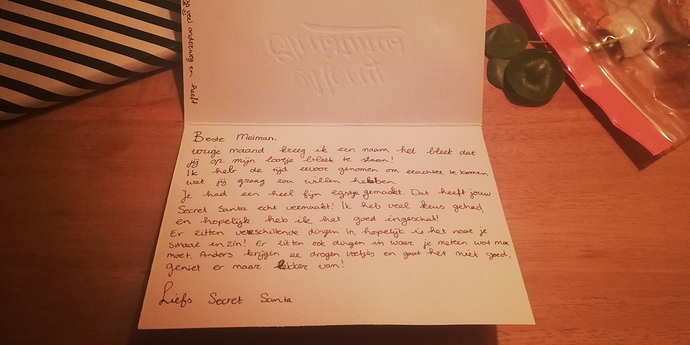 Beste Meiman,
vorige maand kreeg ik een naam, het bleek dat
jij op mijn lootje bleek te staan!
Ik heb de tijd ervoor genomen om erachter te komen
wat jij graag zou willen hebben.
Je had een heel fijn lijstje gemaakt. Dat heeft jouw
Secret Santa echt vermaakt! Ik heb veel keus gehad,
en hopelijk heb ik het goed ingeschat!
Er zitten verschillende dingen in, hopelijk is het naar je
smaak en zin! Er zitten ook dingen in waar je meteen wat mee
moet. Anders krijgen ze drogen voetjes en gaat het niet goed.
geniet er maar lekker van!
Liefs Secret Santa